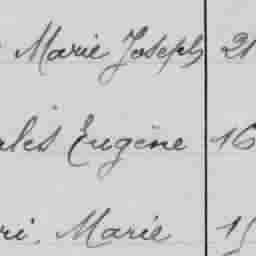 Marie Joseph 21
les Eugène 16
ri Marie 15